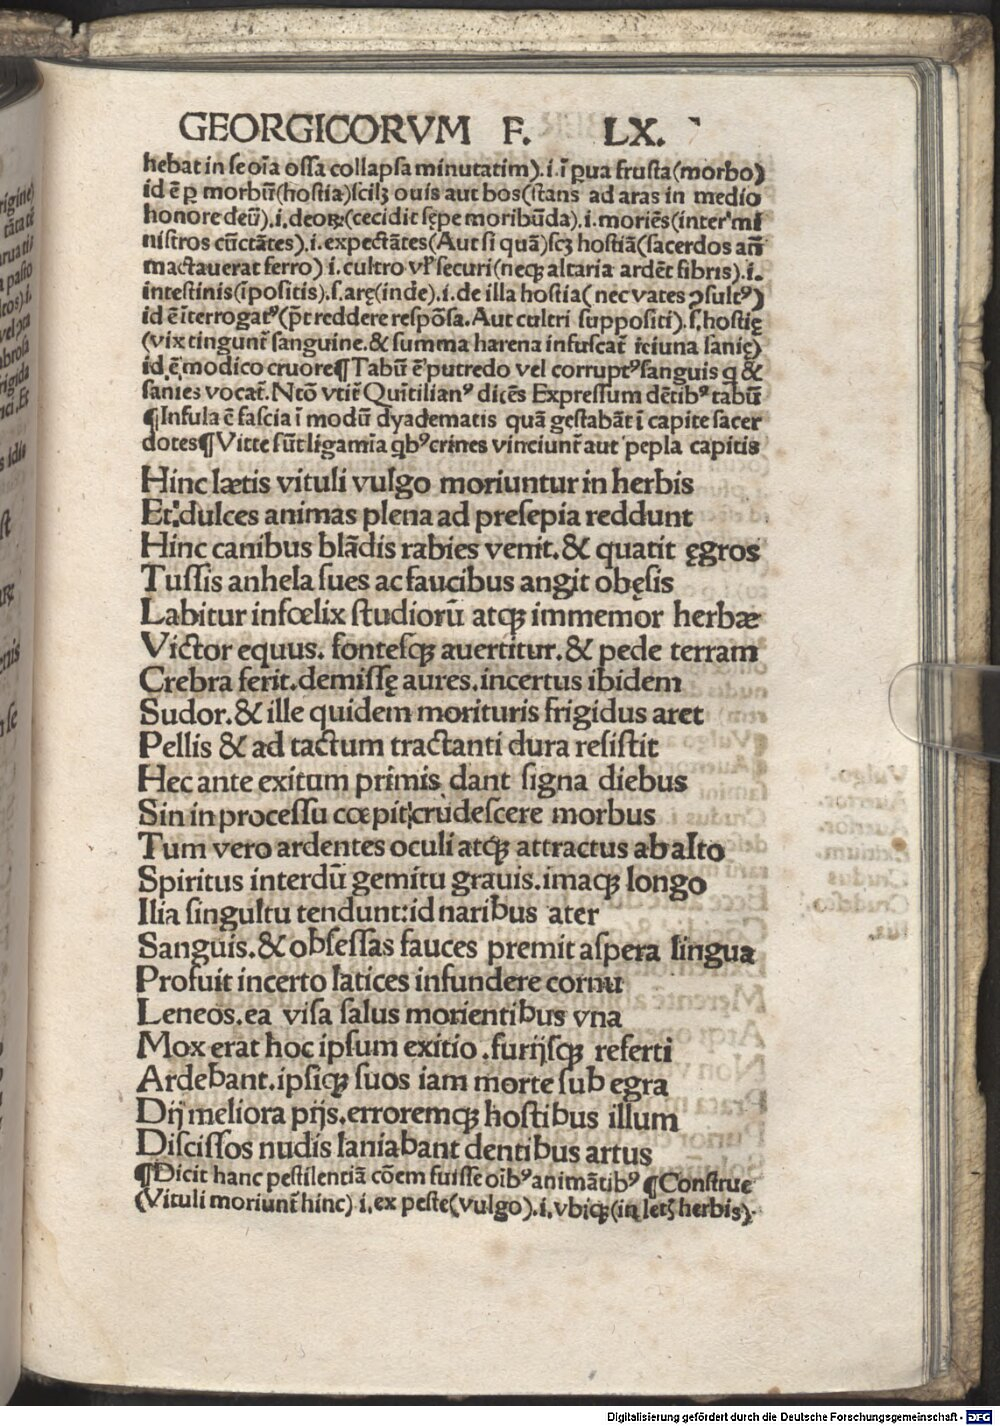 GEORGICORVM F. LX.
hebat in se oīa ossa collapsa minutatim).i.ī ꝑua frusta(morbo)
id ē ꝑ morbū(hostia)scilꝫ ouis aut bos(stans ad aras in medio
honore deū).i.deoꝝ(cecidit sępe moribūda).i.moriēs(inter mi
nistros cūctātes).i.expectātes(Aut si quā)scꝫ hostiā(sacerdos añ
mactauerat ferro) i.cultro vł securi(neqꝫ altaria ardēt fibris).i.
intestinis(īpositis).s.arę(inde).i.de illa hostia( nec vates ꝯsultꝰ)
id ē īterrogatꝰ(p̄t reddere respōsa.Aut cultri suppositi).s.hostię
(vix tingunt̄ sanguine.& summa harena infuscat̄ ieiuna sanie)
id ē modico cruore¶Tabū ē putredo vel corruptꝰ sanguis q &
sanies vocat̄. Ntō vtit̄ Quītilianꝰ dicēs Expressum dētibꝰ tabū
¶Infula ē fascia ī modū dyadematis quā gestabāt ī capite sacer
dotes¶Vitte sūt ligamīa qbꝰ crines vinciunt̄ aut pepla capitis
Hinc lætis vituli vulgo moriuntur in herbis
Et dulces animas plena ad presepia reddunt
Hinc canibus blādis rabies venit.& quatit ęgros
Tussis anhela sues ac faucibus angit obęsis
Labitur infœlix studiorū atqꝫ immemor herbæ
Victor equus. fontesqꝫ auertitur.& pede terram
Crebra ferit.demissę aures.incertus ibidem
Sudor.& ille quidem morituris frigidus aret
Pellis & ad tactum tractanti dura resistit
Hec ante exitum primis dant signa diebus
Sin in processu cœpit crudescere morbus
Tum vero ardentes oculi atqꝫ attractus ab alto
Spiritus interdū gemitu grauis.imaqꝫ longo
Ilia singultu tendunt:id naribus ater
Sanguis.& obsessas fauces premit aspera lingua
Profuit incerto latices infundere cornu
Leneos.ea visa salus morientibus vna
Mox erat hoc ipsum exitio .furijsqꝫ referti
Ardebant.ipsiqꝫ suos iam morte sub egra
Dij meliora pijs.erroremqꝫ hostibus illum
Discissos nudis laniabant dentibus artus
¶Dicit hanc pestilentiā cōem fuisse oībꝰ animātibꝰ ¶Construe
(Vituli moriunt̄ hinc) i.ex peste(vulgo).i.vbiqꝫ(in let; herbis).
Digitalisierung gefördert durch die Deutsche Forschungsgemeinschaft - DFG